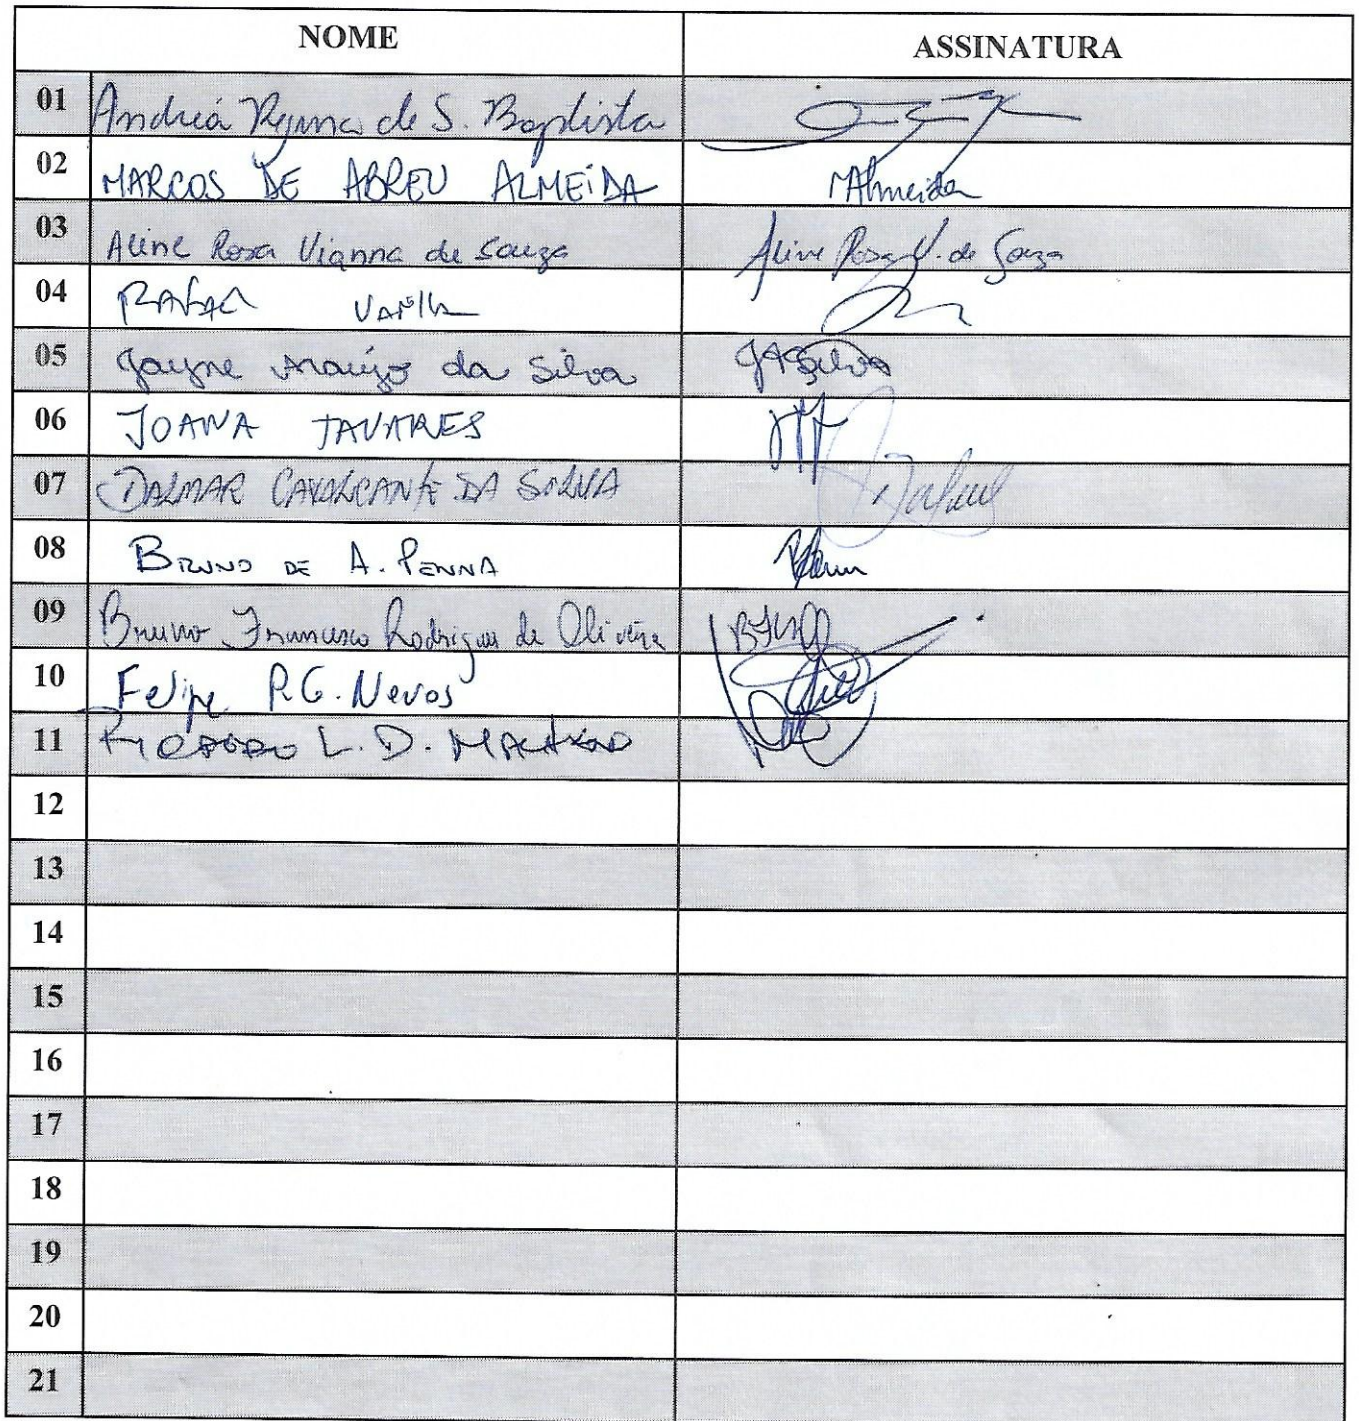 NOME ASSINATURA
01 Andréa Regina de S. Baptista
02 MARCOS DE ABREU ALMEIDA MAlmeida
03 Aline Rosa Vianna de Souza Aline Rosa V. de Souza
04 RAFAEL
05 Jayne Araújo da Silva JASilva
06 JOANA TAVARES
07 DALMAR CAVALCANTE DA SILVA
08 BRUNO DE A. PENNA
09 Bruno Francisco Rodrigues de Oliveira
10 Felipe P.G. Neves
11 L. D. MACHADO
12
13
14
15
16
17
18
19
20
21